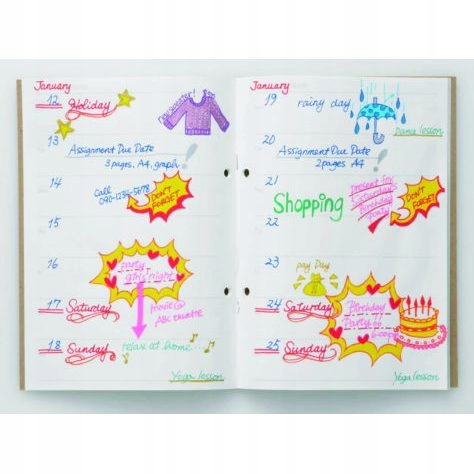 January
12 Holiday
13
Assignment Due Date
3 pages, A4, graph
14
Call
090-1234-5678
DON'T
FORGET
15
16
party
girls' night
17 Saturday
movie @
ABC theatre
18 Sunday
relax at home...
Yoga lesson
January
19 rainy day
Dance lesson
20
Assignment Due Date
2 pages, A4
21
Shopping
Present for
Birthday
Party
DON'T
FORGET
22
23
pay Day
24 Saturday
Birthday
Party
25 Sunday
Yoga lesson